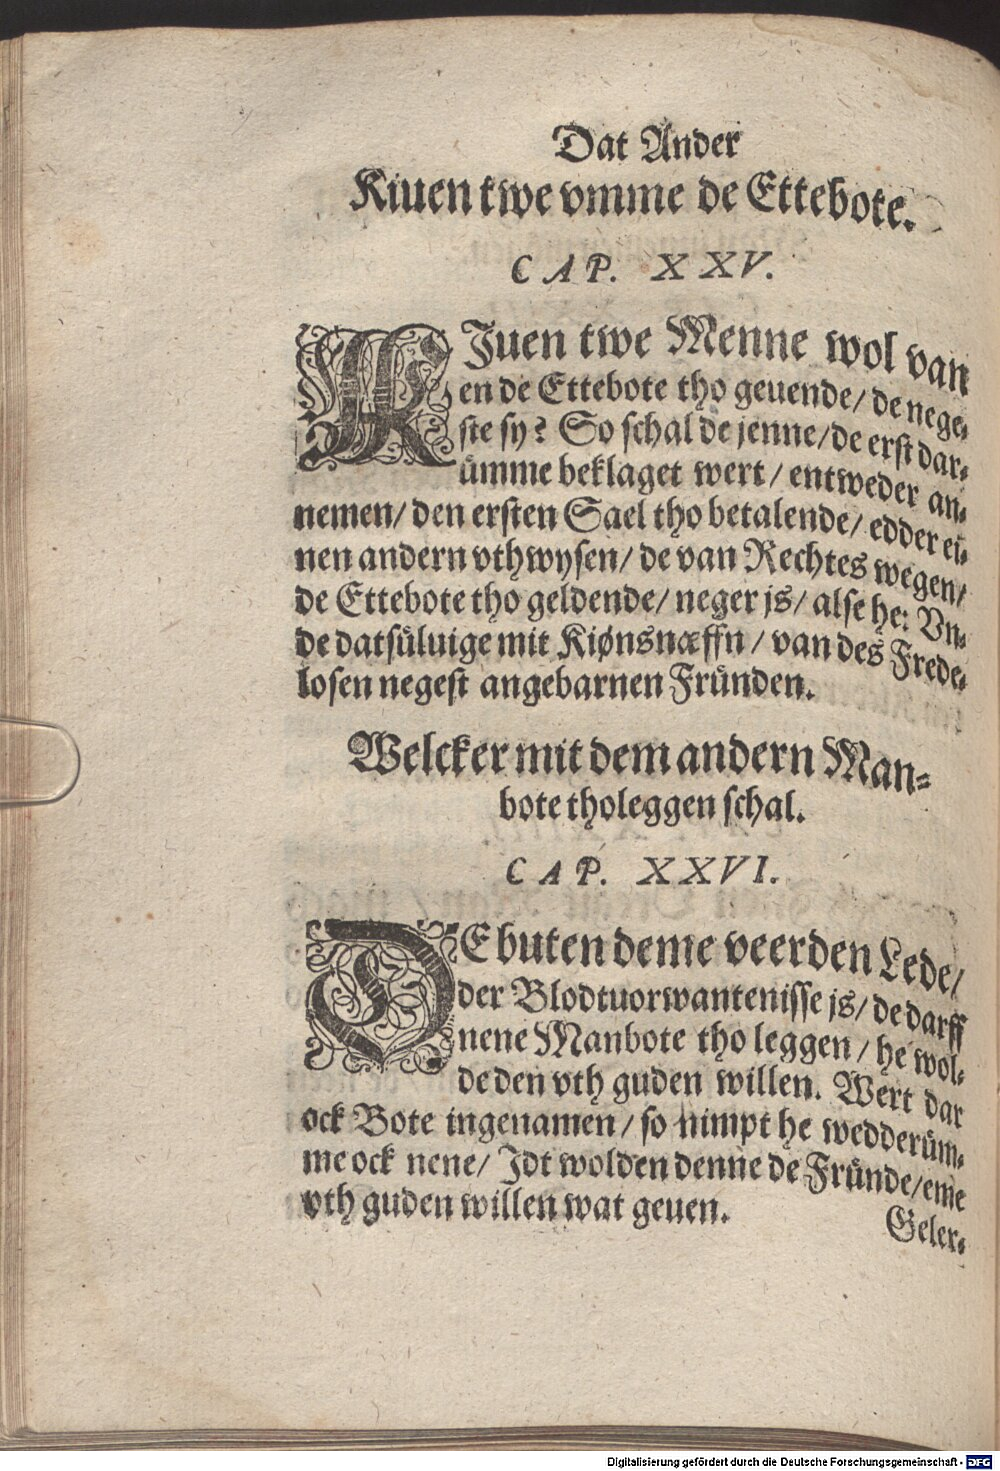 Dat Ander
Kiuen twe vmme de Ettebote.
CAP. XXV.
KJuen twe Menne wol van
en de Ettebote tho geuende/ de nege-
ste sy? So schal de jenne/ de erst dar-
ümme beklaget wert/ entweder an-
nemen/ den ersten Sael tho betalende/ edder ei-
nen andern vthwysen/ de van Rechtes wegen/
de Ettebote tho geldende/ neger js/ alse he: Vn-
de datsüluige mit Kiønsnæffn/ van des Frede-
losen negest angebarnen Fründen.
Welcker mit dem andern Man-
bote tholeggen schal.
CAP. XXVI.
DE buten deme veerden Lede/
der Blodtuorwantenisse js/ de darff
nene Manbote tho leggen/ he wol-
de den vth guden willen. Wert dar
ock Bote ingenamen/ so nimpt he wedderüm-
me ock nene/ Jdt wolden denne de Fründe/ eme
vth guden willen wat geuen.
Geler-
Digitalisierung gefördert durch die Deutsche Forschungsgemeinschaft - DFG